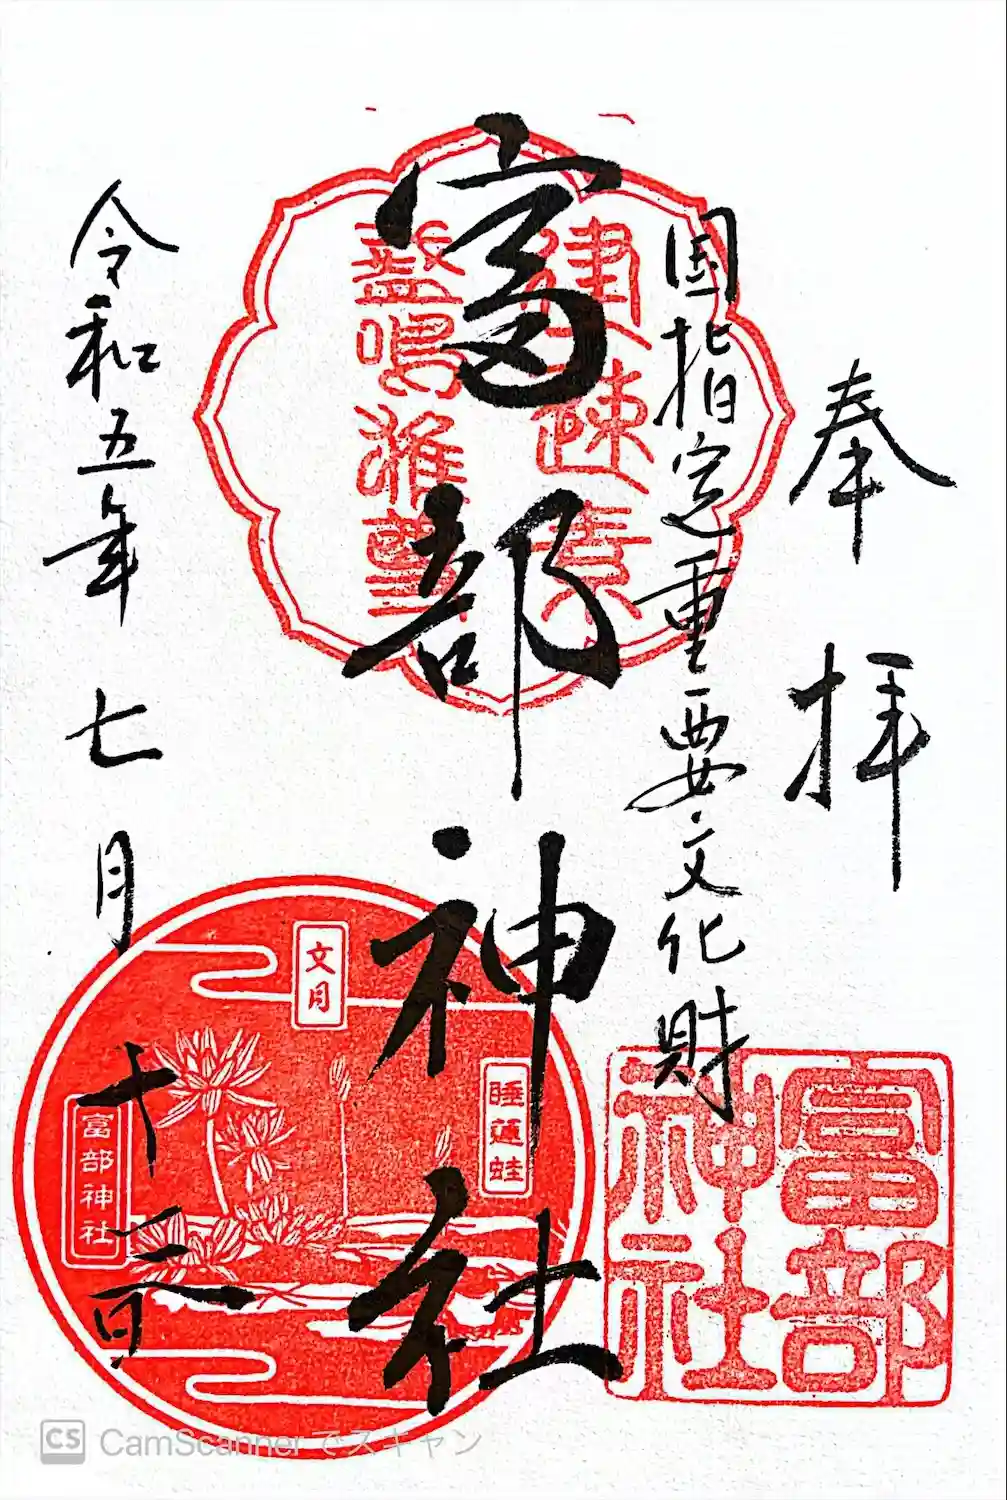 奉拝
国指定重要文化財
建速素
盞嗚
富部神社
令和五年七月十三日
文月
睡蓮蛙
富部神社
富部
神社
CS CamScannerでスキャン